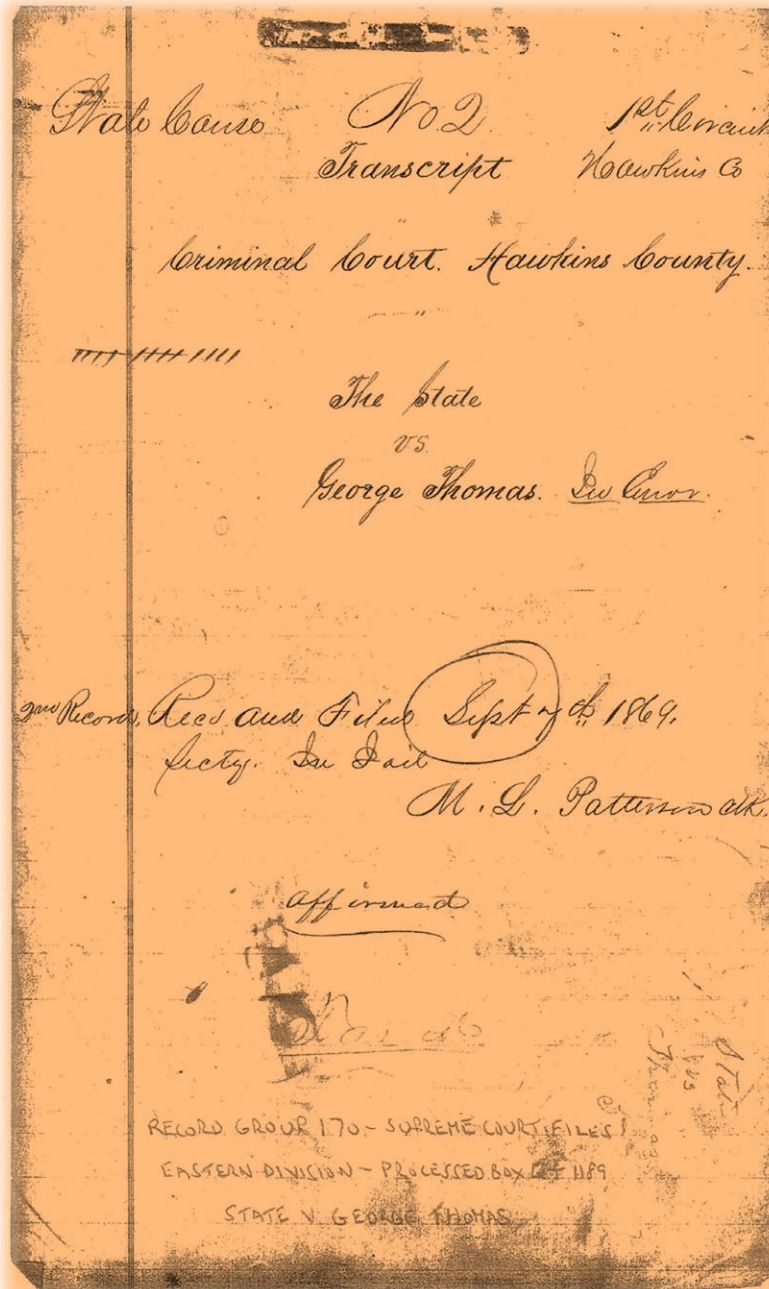 State Cause No 2. 1st Circuit
Transcript Hawkins Co
Criminal Court. Hawkins County.
The State
vs.
George Thomas. In Error.
2nd Record, Recd and Filed Sept 7th 1869.
In Jail
M. L. Patterson clk.
affirmed
State
vs
Thomas
RECORD GROUP 170 - SUPREME COURT FILES
EASTERN DIVISION - PROCESSED BOX 1189
STATE V. GEORGE THOMAS